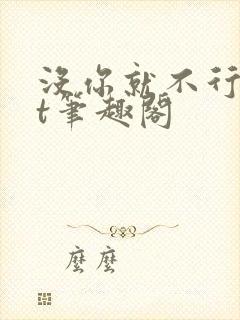 没你就不行
t笔趣阁
麼麼